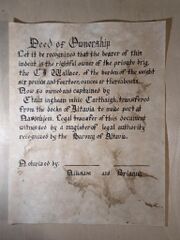 Deed of Ownership
Let it be recognized that the bearer of this
indent is the rightful owner of the private brig,
the C.J. Wallace, of the burden of the weight
six pence and fourteen ounces or thereabouts.
Now so owned and captained by
mac Carthaigh, transferred
from the docks of Altavia to make port at
Legal transfer of this document
witnessed by a magister of legal authority
recognized by the Barony of Altavia.
Notarized by:
and